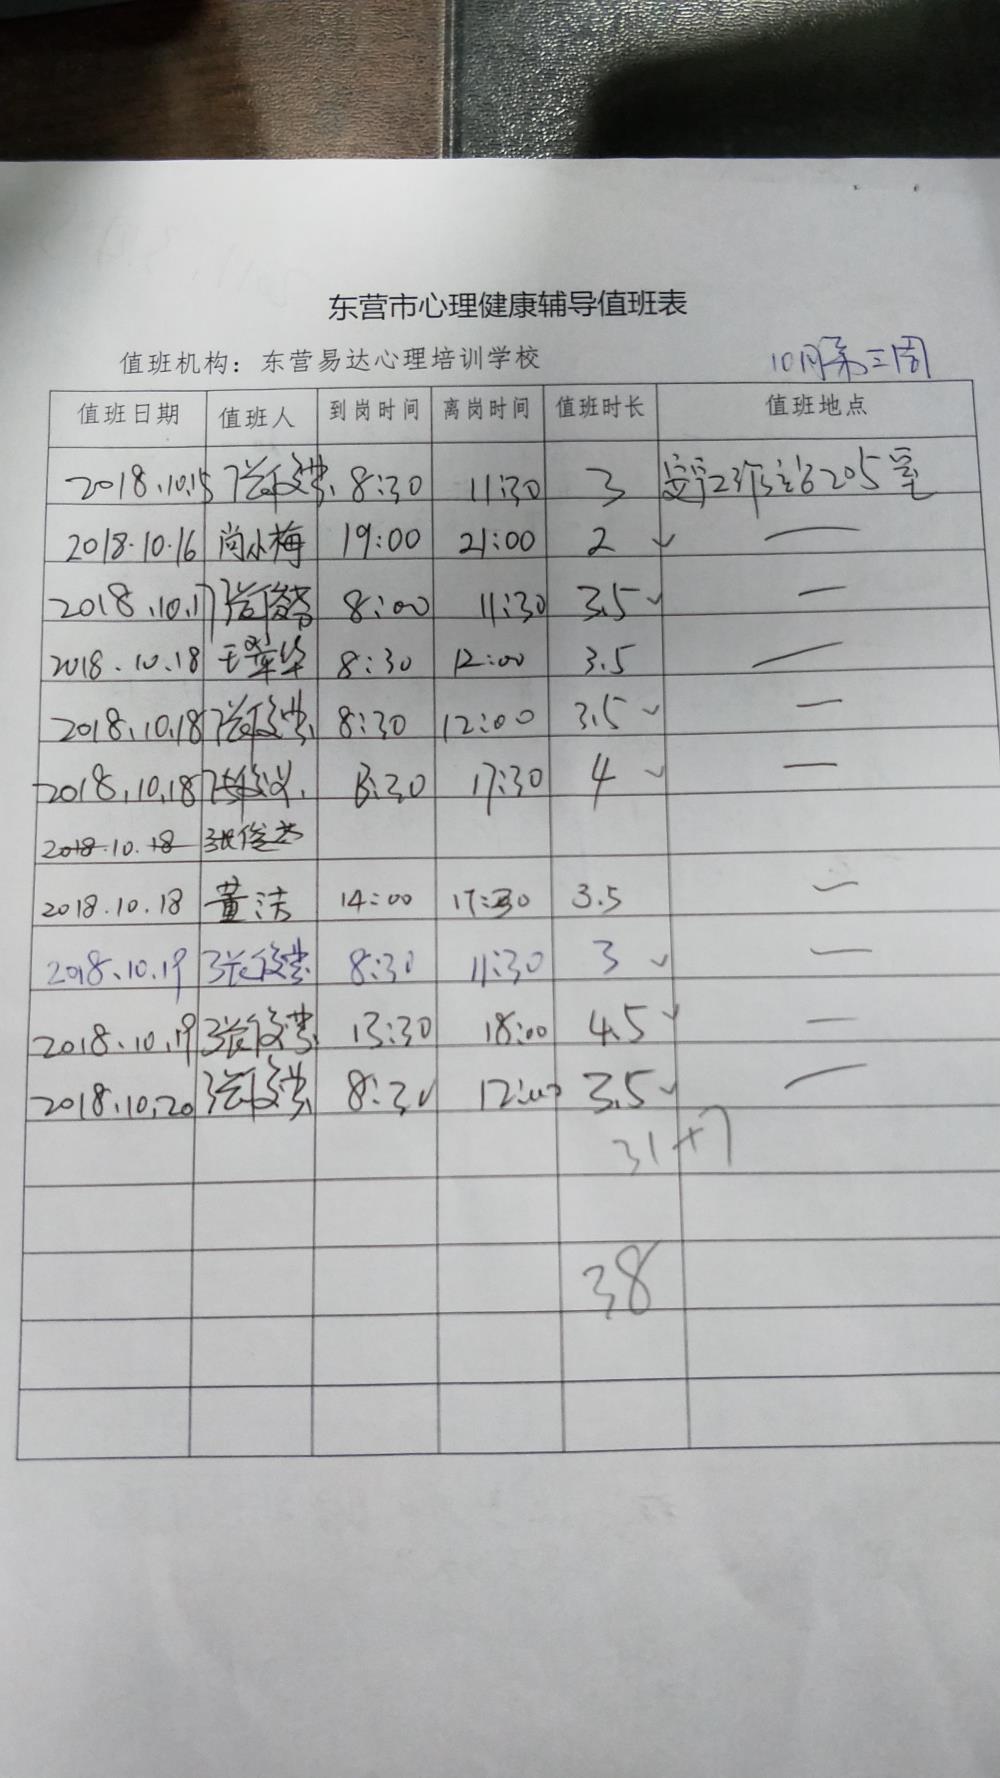 东营市心理健康辅导值班表
值班机构：东营易达心理培训学校 10月第三周
值班日期 值班人 到岗时间 离岗时间 值班时长 值班地点
2018.10.15 8:30 11:30 3 205室
2018.10.16 尚小梅 19:00 21:00 2 —
2018.10.17 8:00 11:30 3.5 —
2018.10.18 8:30 12:00 3.5 —
2018.10.18 8:30 12:00 3.5 —
2018.10.18 13:30 17:30 4 —
2018.10.18
2018.10.18 董洁 14:00 17:30 3.5 —
2018.10.19 8:30 11:30 3 —
2018.10.19 13:30 18:00 4.5 —
2018.10.20 8:30 12:00 3.5 —
31+7
38